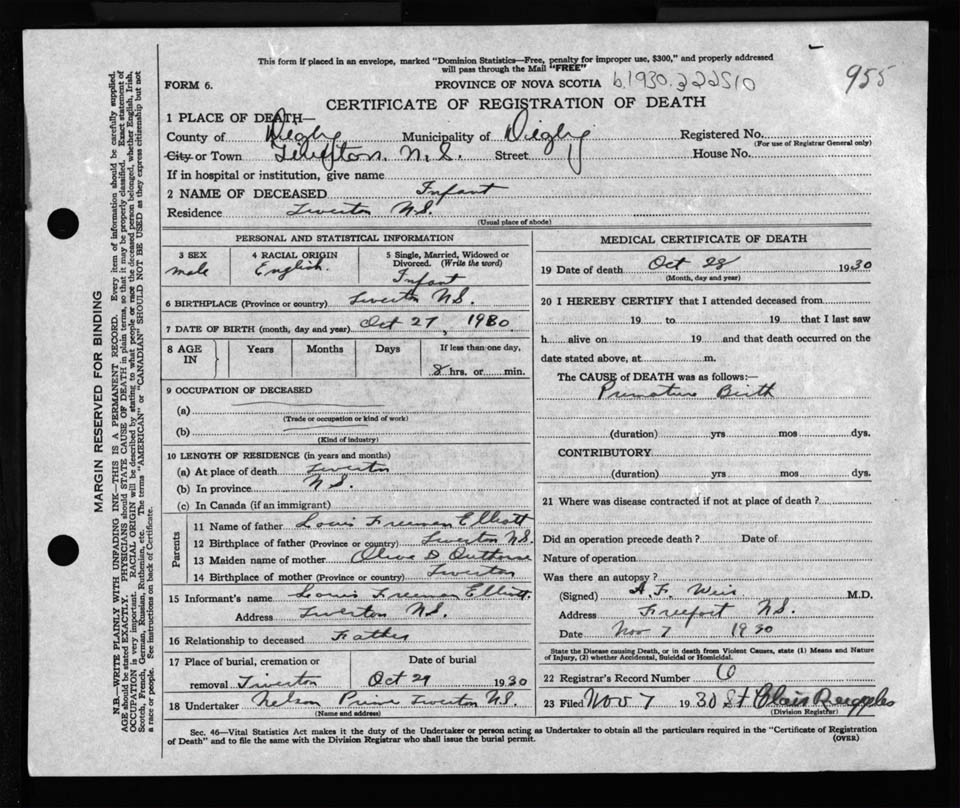 This form if placed in an envelope, marked "Dominion Statistics—Free, penalty for improper use, $300," and properly addressed
will pass through the Mail "FREE"
955
FORM 6. PROVINCE OF NOVA SCOTIA b.1930.322510
CERTIFICATE OF REGISTRATION OF DEATH
1 PLACE OF DEATH—
County of Digby Municipality of Digby Registered No.
(For use of Registrar General only)
City or Town N.S. Street House No.
If in hospital or institution, give name
2 NAME OF DECEASED Infant
Residence Tiverton N.S.
(Usual place of abode)
PERSONAL AND STATISTICAL INFORMATION
3 SEX male
4 RACIAL ORIGIN English.
5 Single, Married, Widowed or Divorced. (Write the word) Infant
6 BIRTHPLACE (Province or country) Tiverton N.S.
7 DATE OF BIRTH (month, day and year) Oct 27, 1930
8 AGE IN Years Months Days If less than one day,
8 hrs. or min.
9 OCCUPATION OF DECEASED
(a)
(Trade or occupation or kind of work)
(b)
(Kind of industry)
10 LENGTH OF RESIDENCE (in years and months)
(a) At place of death Tiverton
(b) In province N.S.
(c) In Canada (if an immigrant)
Parents
11 Name of father Louis Freeman Elliott
12 Birthplace of father (Province or country) Tiverton N.S.
13 Maiden name of mother Olive D Outhouse
14 Birthplace of mother (Province or country) Tiverton
15 Informant's name Louis Freeman Elliott
Address Tiverton N.S.
16 Relationship to deceased Father
17 Place of burial, cremation or Date of burial
removal Tiverton Oct 29 1930
18 Undertaker Nelson Tiverton N.S.
(Name and address)
MEDICAL CERTIFICATE OF DEATH
19 Date of death Oct 28 1930
(Month, day and year)
20 I HEREBY CERTIFY that I attended deceased from
19 to 19 that I last saw
h alive on 19 and that death occurred on the
date stated above, at m.
The CAUSE of DEATH was as follows:—
Premature Birth
(duration) yrs mos dys.
CONTRIBUTORY
(duration) yrs mos dys.
21 Where was disease contracted if not at place of death?
Did an operation precede death? Date of
Nature of operation
Was there an autopsy?
(Signed) A. F. Weir M.D.
Address Freeport N.S.
Date Nov 7 1930
State the Disease causing Death, or in death from Violent Causes, state (1) Means and Nature
of Injury, (2) whether Accidental, Suicidal or Homicidal.
22 Registrar's Record Number 6
23 Filed Nov 7 1930 St Clair Ruggles
(Division Registrar)
Sec. 46—Vital Statistics Act makes it the duty of the Undertaker or person acting as Undertaker to obtain all the particulars required in the "Certificate of Registration
of Death" and to file the same with the Division Registrar who shall issue the burial permit. (OVER)
MARGIN RESERVED FOR BINDING
N.B.—WRITE PLAINLY WITH UNFADING INK—THIS IS A PERMANENT RECORD. Every item of information should be carefully supplied.
AGE should be stated EXACTLY. PHYSICIANS should STATE CAUSE OF DEATH in plain terms, so that it may be properly classified. Exact statement of
OCCUPATION is very important. RACIAL ORIGIN will be described by stating to what people or race the deceased person belonged, whether English, Irish,
Scotch, French, German, Russian, Ruthenian, etc. The terms "AMERICAN" or "CANADIAN" SHOULD NOT BE USED as they express citizenship but not
a race or people. See instructions on back of Certificate.